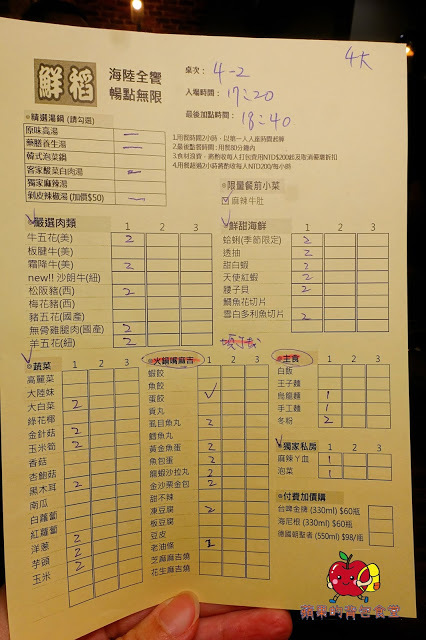 鮮稻
海陸全饗
暢點無限
桌次: 4-2
4大
入場時間: 17:20
最後加點時間: 18:40
1.用餐時間2小時，以第一人入座時間起算
2.最後點餐時間：用餐80分鐘內
3.食材浪費，將酌收每人打包費用NTD$200起及取消優惠折扣
4.用餐超過2小時將酌收每人NTD200/每小時
精選湯鍋 (請勾選)
原味高湯 一
藥膳養生湯 一
韓式泡菜鍋
客家酸菜白肉湯 一
獨家麻辣湯
剝皮辣椒湯 (加價$50) 一
限量餐前小菜
麻辣牛肚
嚴選肉類 1 2 3
牛五花(美) 2
板腱牛(美)
霜降牛(美) 2
new!! 沙朗牛(紐)
松阪豬(西) 2
梅花豬(西)
豬五花(國產)
無骨雞腿肉(國產) 2
羊五花(紐) 2
鮮甜海鮮 1 2 3
蛤蜊(季節限定) 2
透抽 2
甜白蝦 2
天使紅蝦 2
腰子貝 2
鯛魚花切片
雲白多利魚切片 2
蔬菜 1 2 3
高麗菜
大陸妹
大白菜 2
綠花椰
金針菇 2
玉米筍 2
香菇
杏鮑菇
黑木耳 2
南瓜
白蘿蔔
紅蘿蔔
洋蔥 2
芋頭 2
玉米 2
火鍋嘴麻吉 1 2 3
蝦餃
魚餃
蛋餃 ✓
貢丸
虱目魚丸 2
鱈魚丸
黃金魚蛋 2
魚包蛋 2
龍蝦沙拉丸 2
金沙栗金包 2
甜不辣
凍豆腐 2
板豆腐
豆皮
老油條 2
芝麻麻吉燒
花生麻吉燒
主食 1 2 3
白飯
王子麵
烏龍麵 1
手工麵 1
冬粉 2
獨家私房 1 2 3
麻辣ㄚ血 1
泡菜 1
付費加價購
台啤金牌 (330ml) $60瓶
海尼根 (330ml) $60瓶
德國朝聖者 (550ml) $98/瓶
蘋果的背包食堂